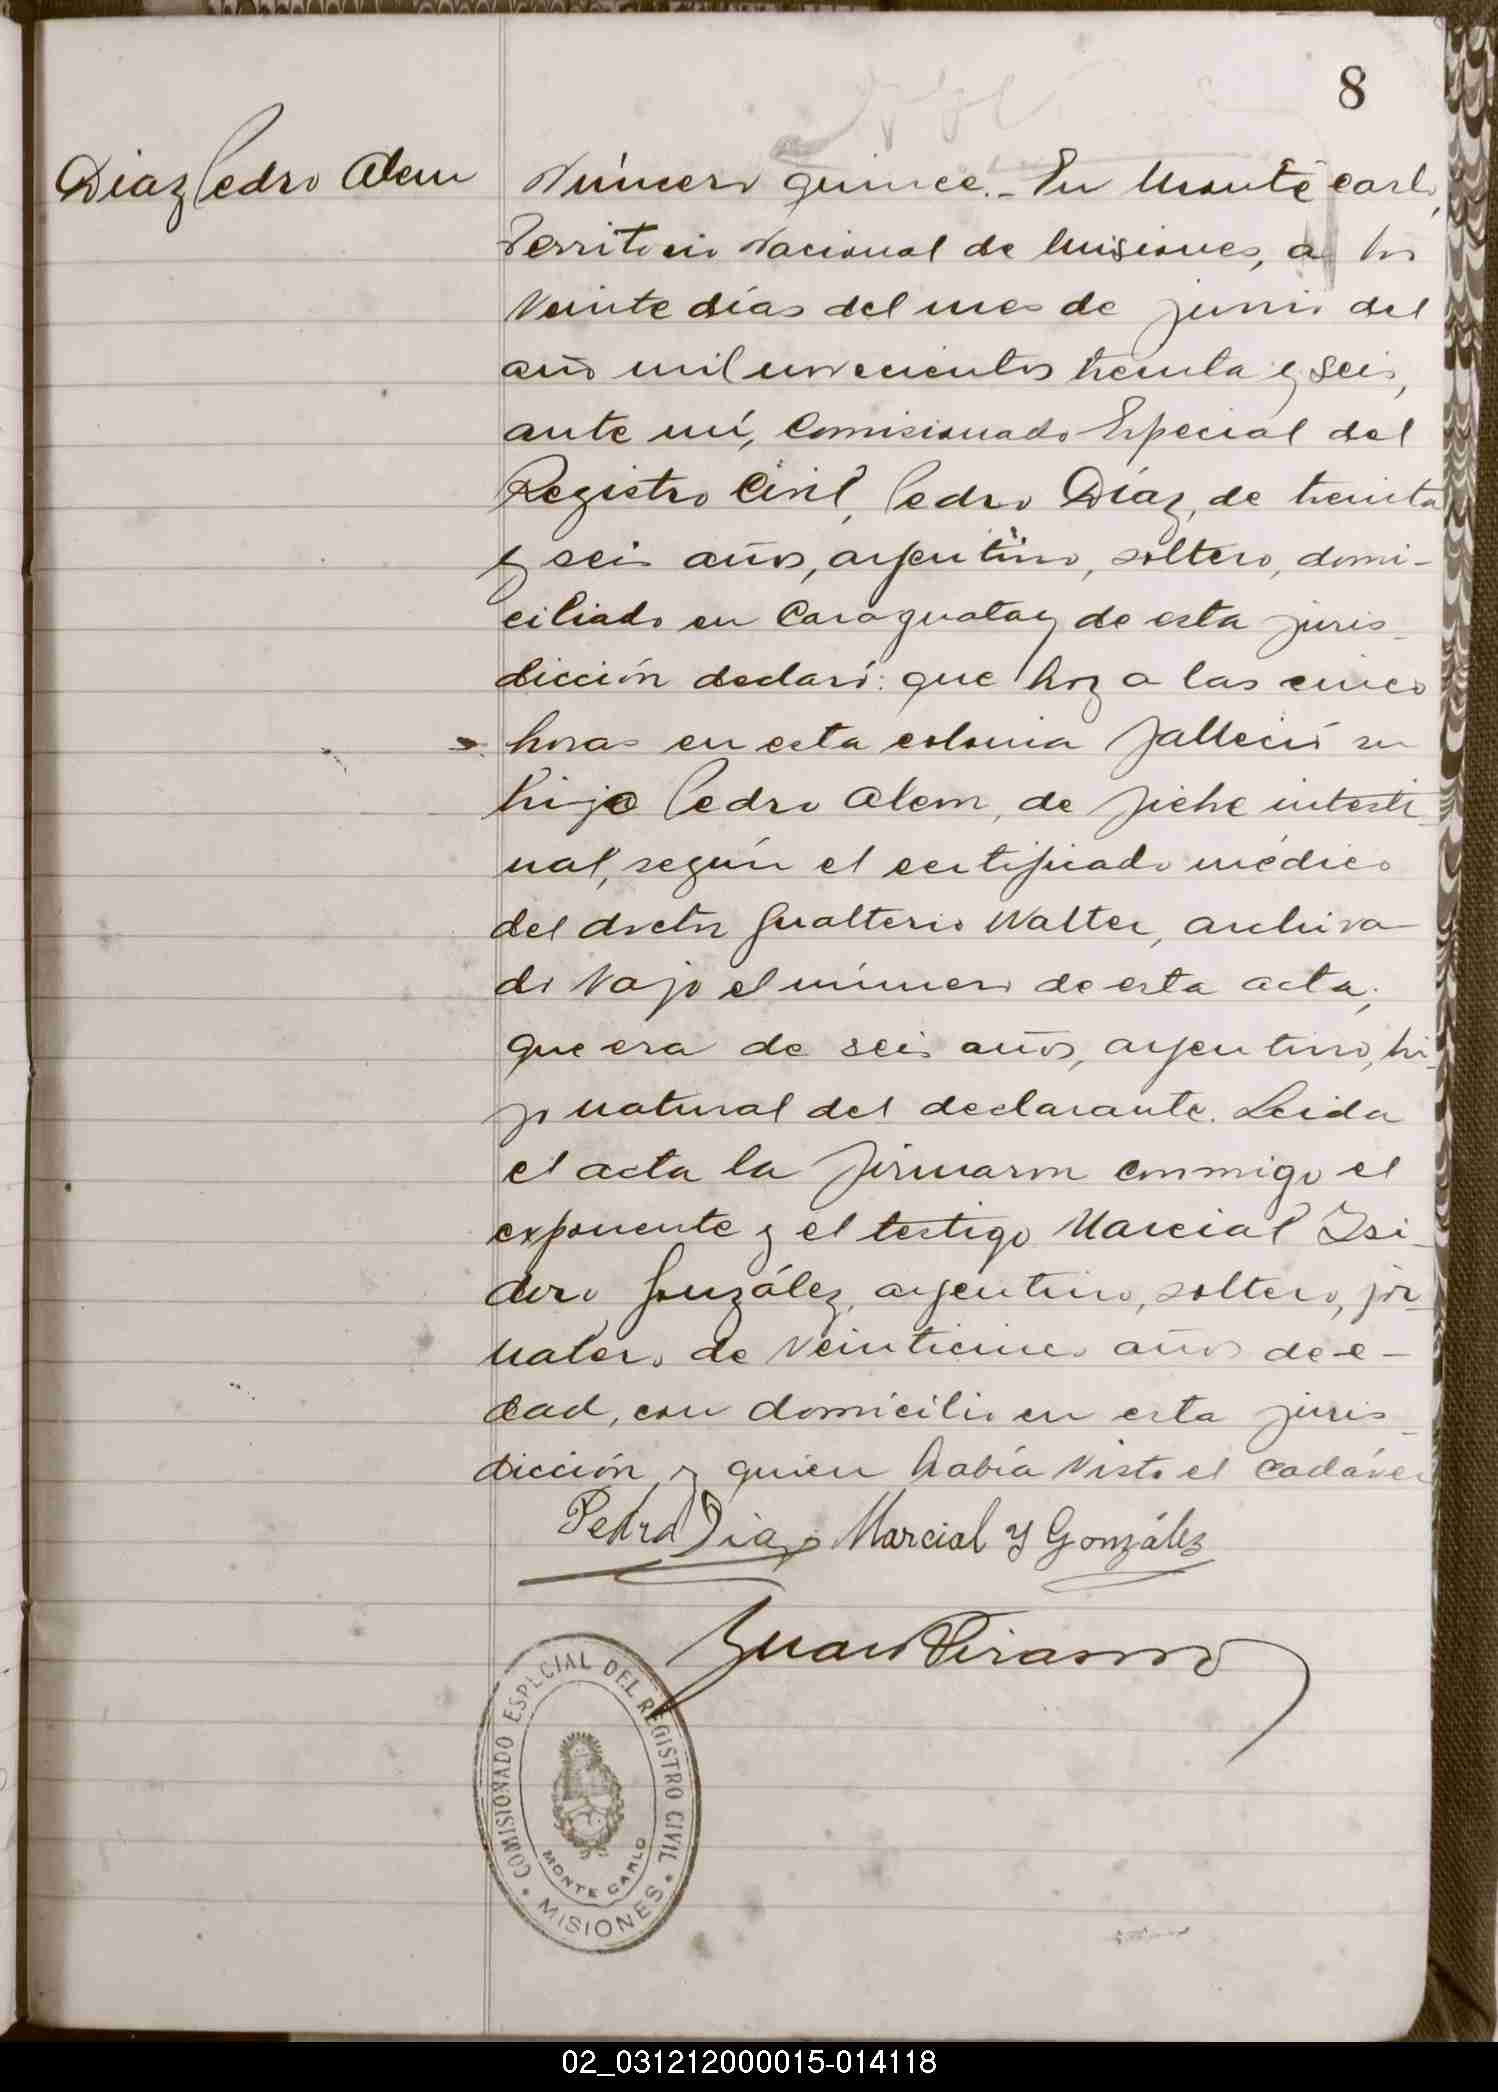 8
Diaz Pedro Alem
Número quince.- En Monte Carlo,
Territorio Nacional de Misiones, a los
veinte días del mes de junio del
año mil novecientos treinta y seis,
ante mí, Comisionado Especial del
Registro Civil, Pedro Díaz, de treinta
y seis años, argentino, soltero, domi-
ciliado en Caraguatay de esta juris-
dicción declaró: que hoy a las cinco
horas en esta colonia falleció su
hijo Pedro Alem, de fiebre intesti-
nal, según el certificado médico
del doctor Gualterio Walter, archiva-
do vajo el número de esta acta;
que era de seis años, argentino, hi-
jo natural del declarante. Leida
el acta la firmaron conmigo el
exponente y el testigo Marcial Isi-
doro González, argentino, soltero, jor-
nalero, de veinticinco años de e-
dad, con domicilio en esta juris-
dicción, y quien había visto el cadáver
Pedro Diaz Marcial Y González
Juan
COMISIONADO ESPECIAL DEL REGISTRO CIVIL
MONTE CARLO
MISIONES
02_031212000015-014118